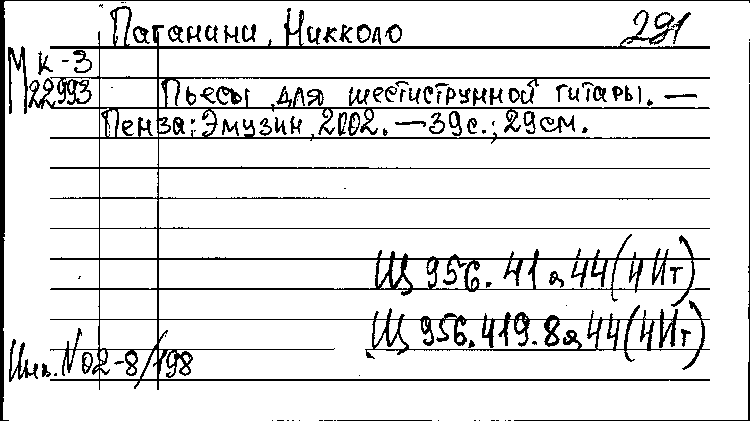 Паганини, Никколо 291
М К-3
22993
Пьесы для шестиструнной гитары. —
Пенза: Эмузин, 2002. — 39с.; 29см.
Щ 956.41я44(4Ит)
Щ 956.419.8я44(4Ит)
Инв. N 02-8/198